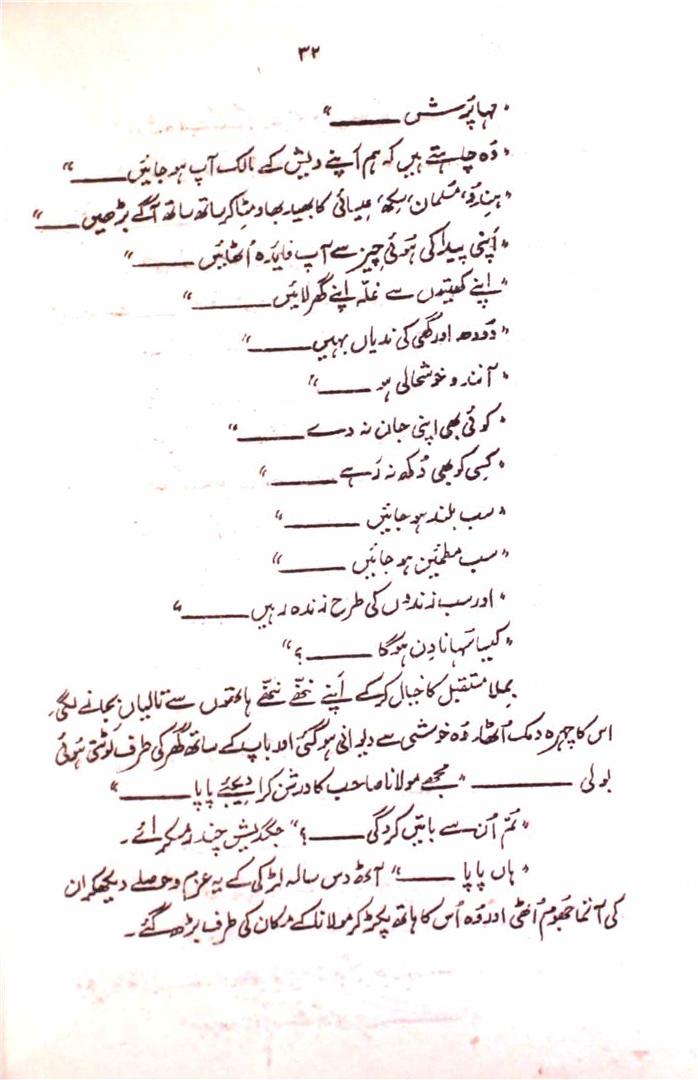 ۳۲
"مہا پُرش ـــــــــ"
"وُہ چاہتے ہیں کہ ہم اَپنے دیش کے مالک آپ ہو جائیں ـــــــــ"
"ہندوُ، مُسلمان، سِکھ، عیسائی کا بھید بھاوٴ مِٹا کر ساتھ ساتھ آگے بڑھیں ـــــــــ"
"اَپنی پیدا کی ہُوئی چیز سے آپ فائدہ اُٹھائیں ـــــــــ"
"اَپنے کھیتوں سے غلّہ اپنے گھر لائیں ـــــــــ"
"دُودھ اور گھی کی ندیاں بہیں ـــــــــ"
"آنند و خوشحالی ہو ـــــــــ"
"کوئی بھی اپنی جان نہ دے ـــــــــ"
"کِسی کو بھی دُکھ نہ رَہے ـــــــــ"
"سب بلند ہو جائیں ـــــــــ"
"سب مطمئِن ہو جائیں ـــــــــ"
"اور سب زندوں کی طرح زندہ رہیں ـــــــــ"
"کیسا سُہانا دِن ہوگا ـــــــــ؟"
بِملا مستقبل کا خیال کر کے اَپنے ننھّے ننھّے ہاتھوں سے تالیاں بجانے لگی۔
اس کا چہرہ دمک اُٹھا۔ وُہ خوشی سے دیوانی ہو گئی اور باپ کے ساتھ گھر کی طرف لَوٹتی ہُوئی
بولی ـــــــــ "مجھے مولانا صاحب کا درشن کرا دیجئے پاپا ـــــــــ"
"تُم اُن سے باتیں کرو گی ـــــــــ؟" جگدیش چندر مُسکرائے۔
"ہاں پاپا ـــــــــ" آٹھ دس سالہ لڑکی کے یہ عزم و حوصلے دیکھ کر ان
کی آتما جُھوم اُٹھی اور وُہ اُس کا ہاتھ پکڑ کر مولانا کے مکان کی طرف بڑھ گئے۔